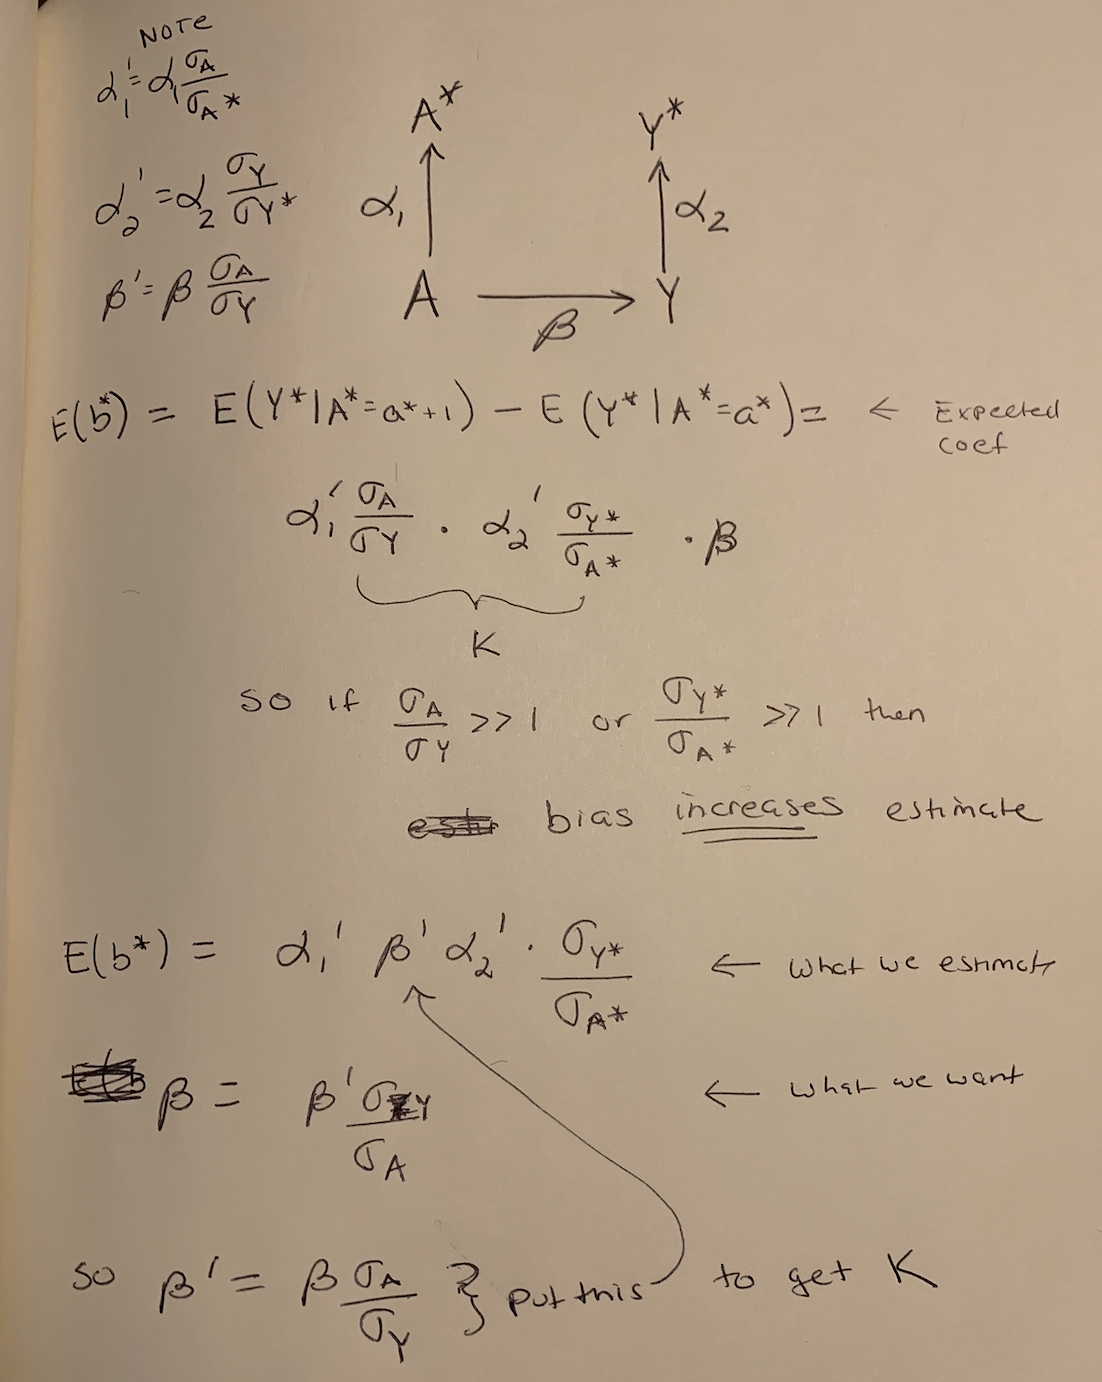 NOTE
α₁' = α₁ σA/σA*
α₂' = α₂ σY/σY*
β' = β σA/σY
A* Y*
α₁ α₂
A Y
β
E(b*) = E(Y*|A*=a*+1) − E(Y*|A*=a*) = ← Expected coef
α₁' σA/σY · α₂' σY*/σA* · β
K
so if σA/σY >> 1 or σY*/σA* >> 1 then
bias increases estimate
E(b*) = α₁' β' α₂' · σY*/σA* ← what we estimate
β = β' σY/σA ← what we want
so β' = β σA/σY } put this to get K